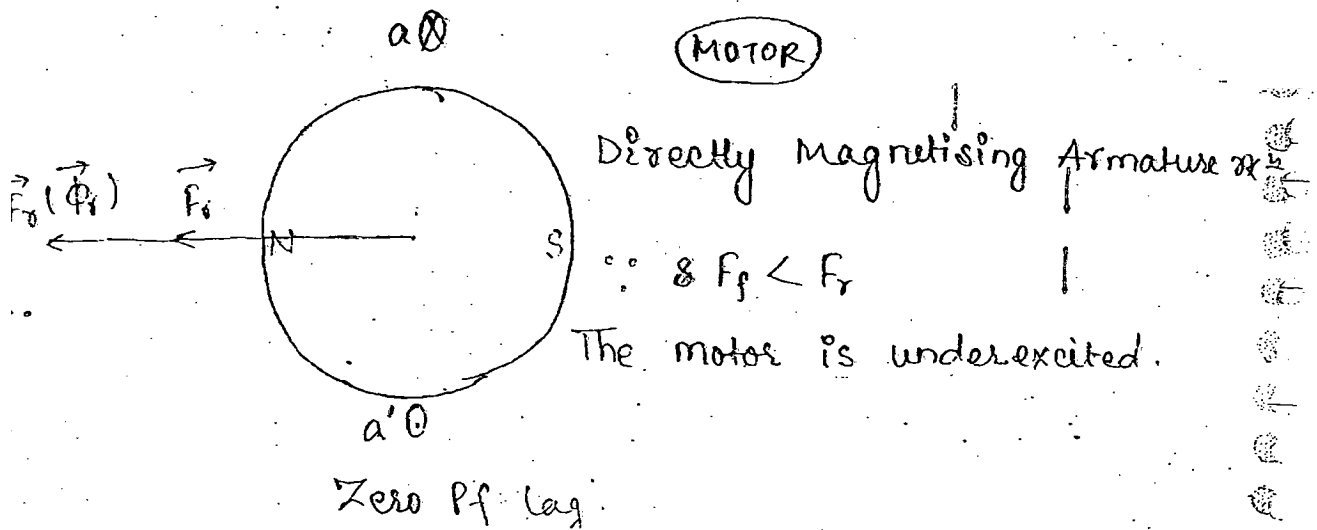 a⊗
MOTOR
Directly Magnetising Armature rxn
F⃗r (ϕ⃗r) F⃗f
N S
∵ & Ff < Fr
The motor is underexcited.
a'⊙
Zero Pf lag.